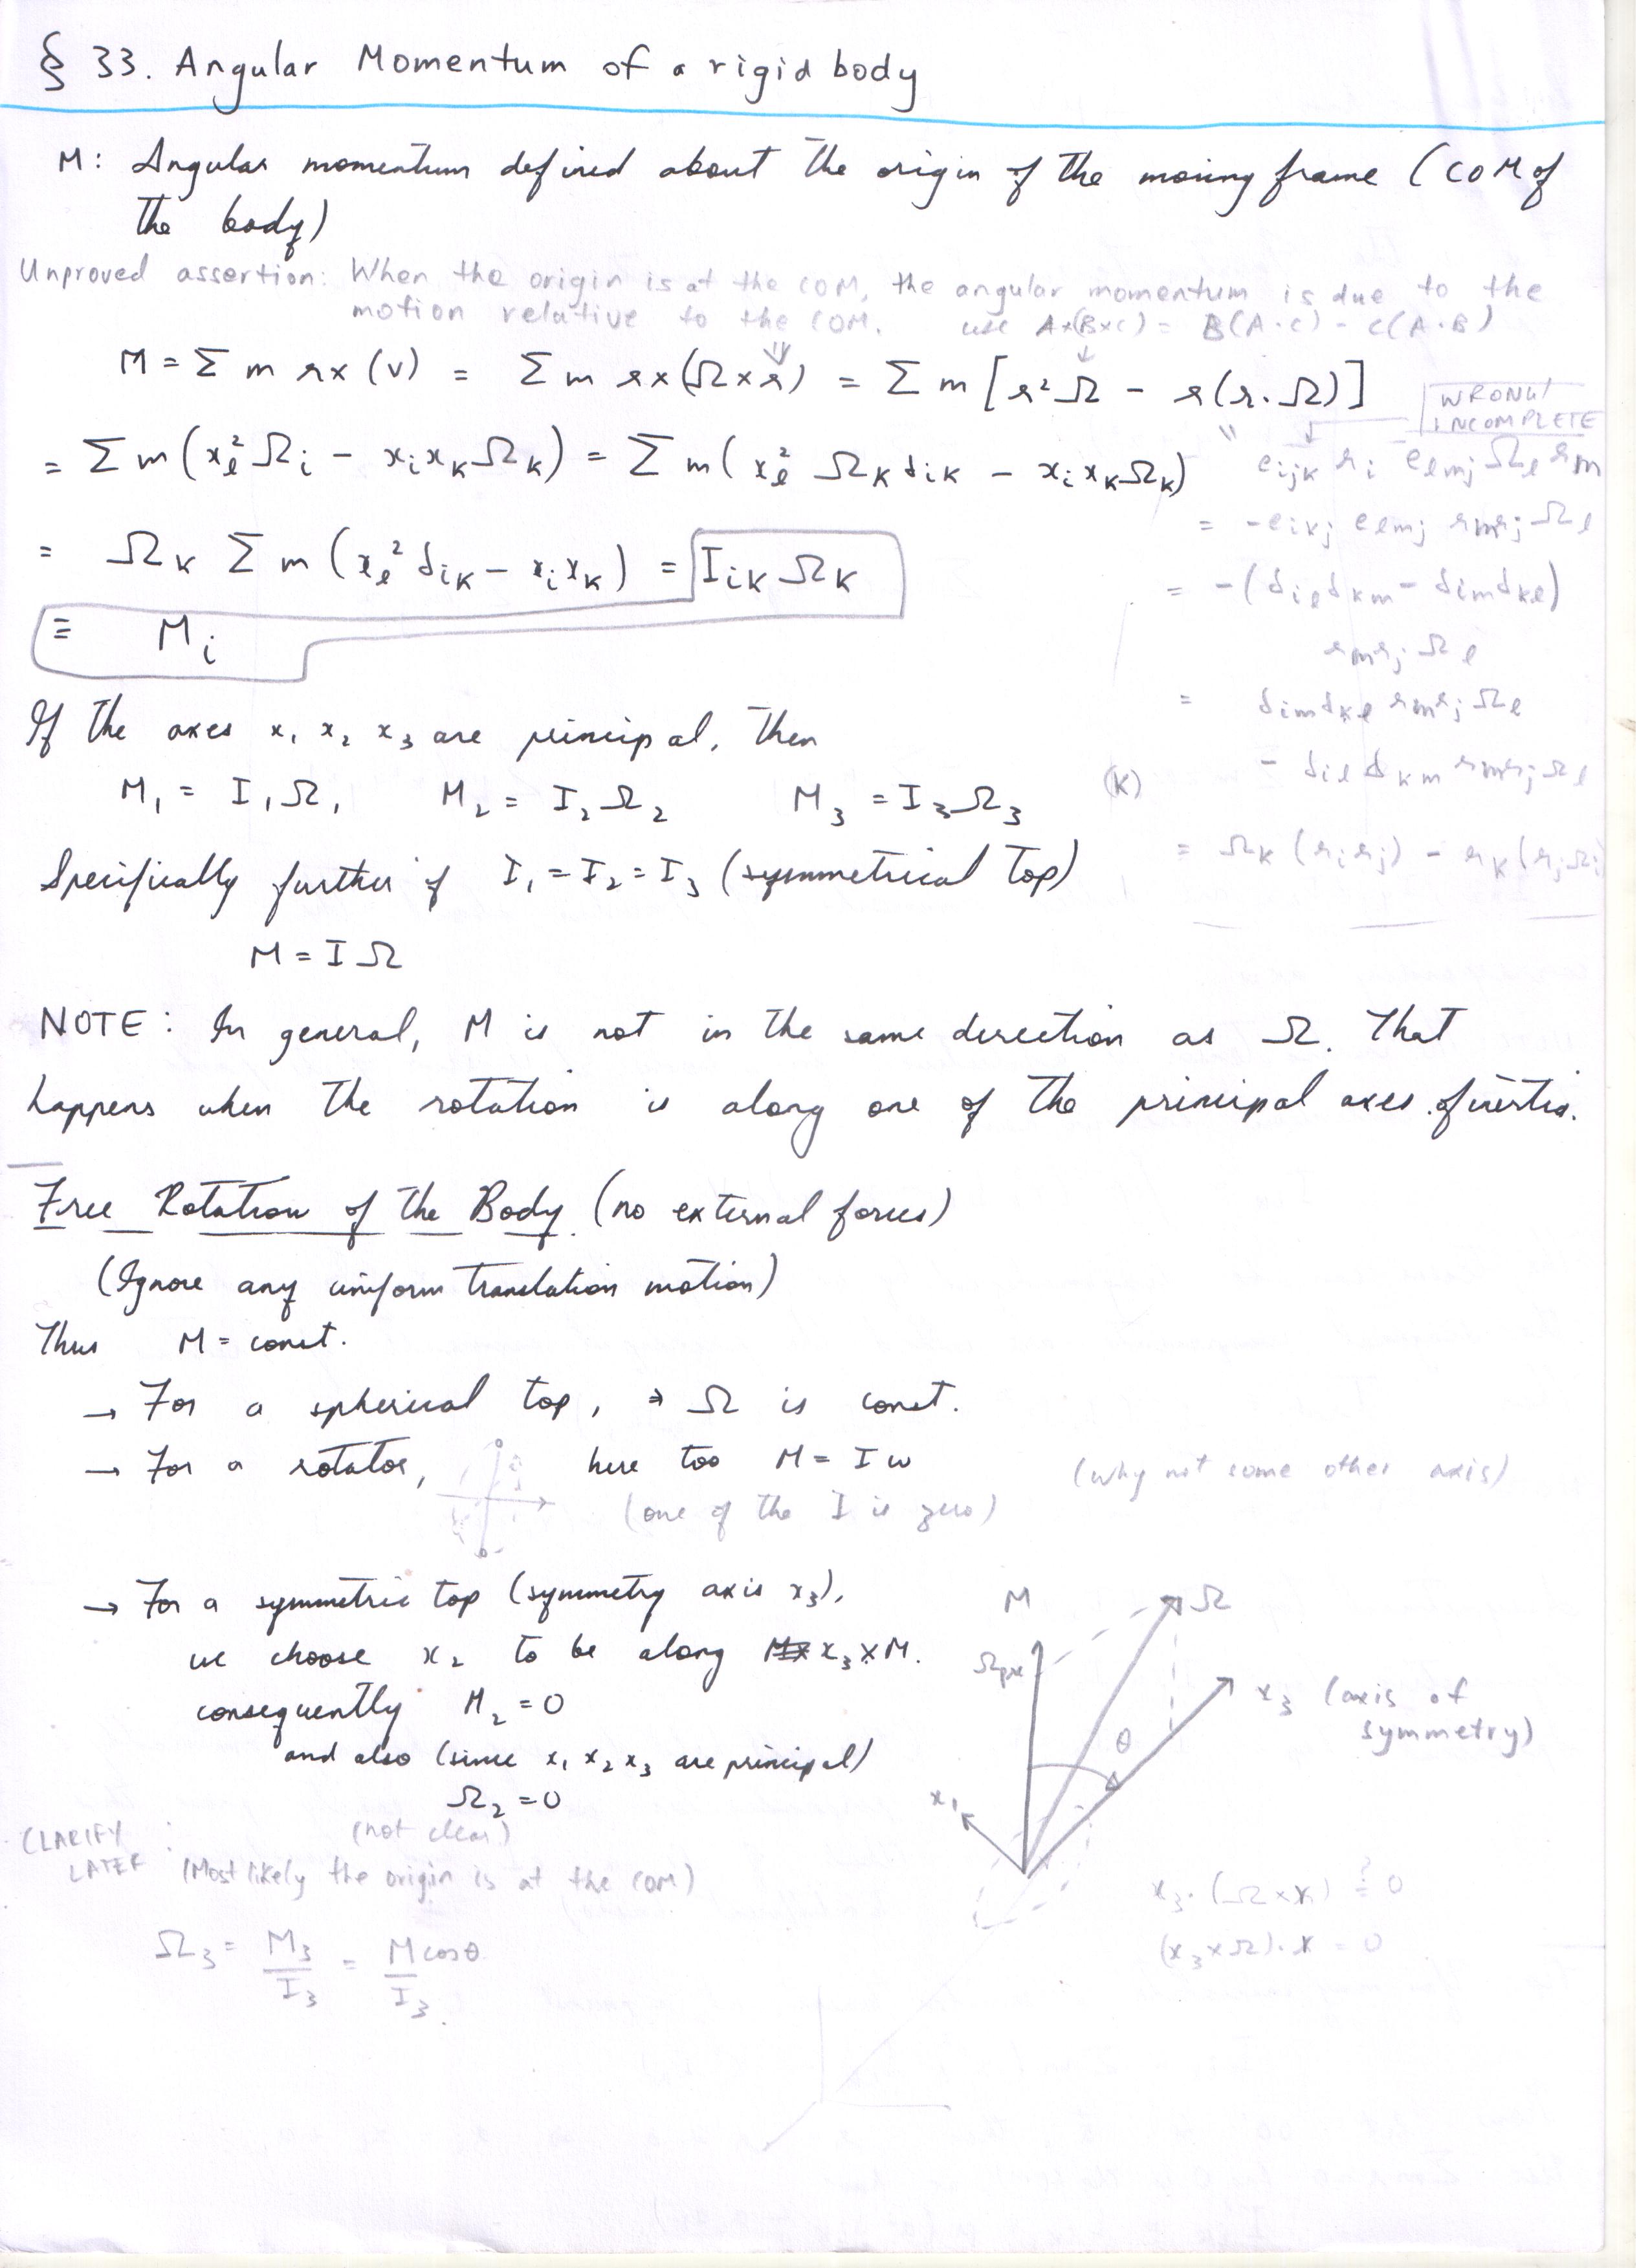 § 33. Angular Momentum of a rigid body
M: Angular momentum defined about the origin of the moving frame (COM of
the body)
Unproved assertion: When the origin is at the COM, the angular momentum is due to the
motion relative to the COM. use A×(B×C) = B(A·C) - C(A·B)
M = Σ m r×(v) = Σ m r×(Ω×r) = Σ m [r²Ω - r(r·Ω)]
WRONG/
INCOMPLETE
= Σ m (x_l² Ω_i - x_i x_k Ω_k) = Σ m (x_l² Ω_k δ_ik - x_i x_k Ω_k)
e_ijk r_i e_lmj Ω_l r_m
= -e_ikj e_lmj r_m r_j Ω_l
= Ω_k Σ m (x_l² δ_ik - x_i x_k) = I_ik Ω_k
= -(δ_il δ_km - δ_im δ_kl)
≡ M_i
r_m r_j Ω_l
= δ_im δ_kl r_m r_j Ω_l
If the axes x₁ x₂ x₃ are principal, then
- δ_il δ_km r_m r_j Ω_l
M₁ = I₁Ω₁ M₂ = I₂Ω₂ M₃ = I₃Ω₃ (k)
= Ω_k (r_i r_j) - r_k (r_j Ω_i)
Specifically further if I₁ = I₂ = I₃ (symmetrical top)
M = I Ω
NOTE: In general, M is not in the same direction as Ω. That
happens when the rotation is along one of the principal axes of inertia.
Free Rotation of the Body (no external forces)
(Ignore any uniform translation motion)
Thus M = const.
→ For a spherical top, ⇒ Ω is const.
→ For a rotator, here too M = I ω (why not some other axis)
(one of the I is zero)
→ For a symmetric top (symmetry axis x₃),
we choose x₂ to be along x₃×M.
consequently M₂ = 0
and also (since x₁ x₂ x₃ are principal)
Ω₂ = 0
(not clear)
CLARIFY
LATER : (Most likely the origin is at the COM)
Ω₃ = M₃/I₃ = M cosθ/I₃.
M
Ω
Ω_pr
x₃ (axis of
symmetry)
θ
x₁
x₃·(Ω×x) ≟ 0
(x₃×Ω)·x = 0